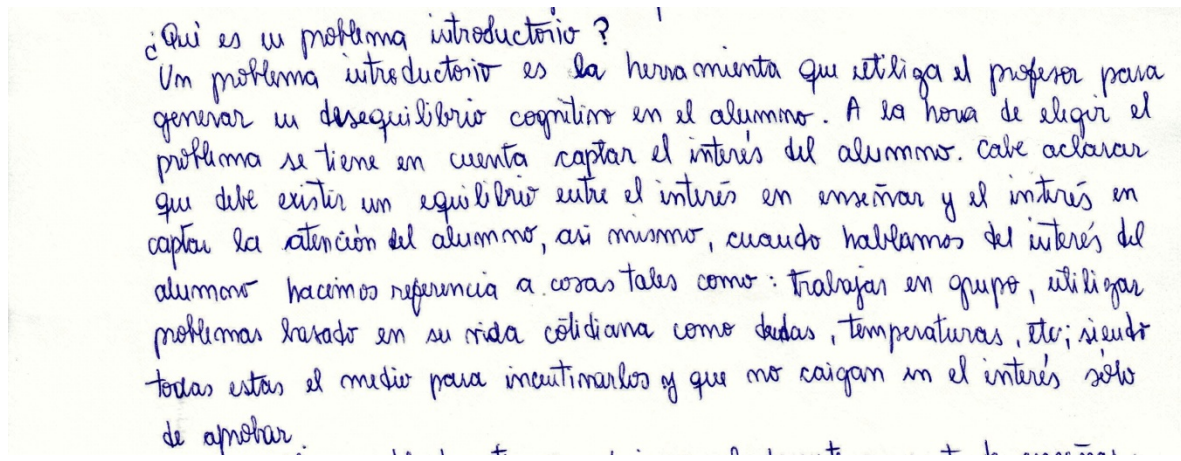 ¿Qué es un problema introductorio?
Un problema introductorio es la herramienta que utiliza el profesor para
generar un desequilibrio cognitivo en el alumno. A la hora de eligir el
problema se tiene en cuenta captar el interés del alumno. Cabe aclarar
que debe existir un equilibrio entre el interés en enseñar y el interés en
captar la atención del alumno, asi mismo, cuando hablamos del interés del
alumno hacemos referencia a cosas tales como: trabajar en grupo, utilizar
problemas basado en su vida cotidiana como deudas, temperaturas, etc; siendo
todas estas el medio para incentivarlos y que no caigan en el interés sólo
de aprobar.